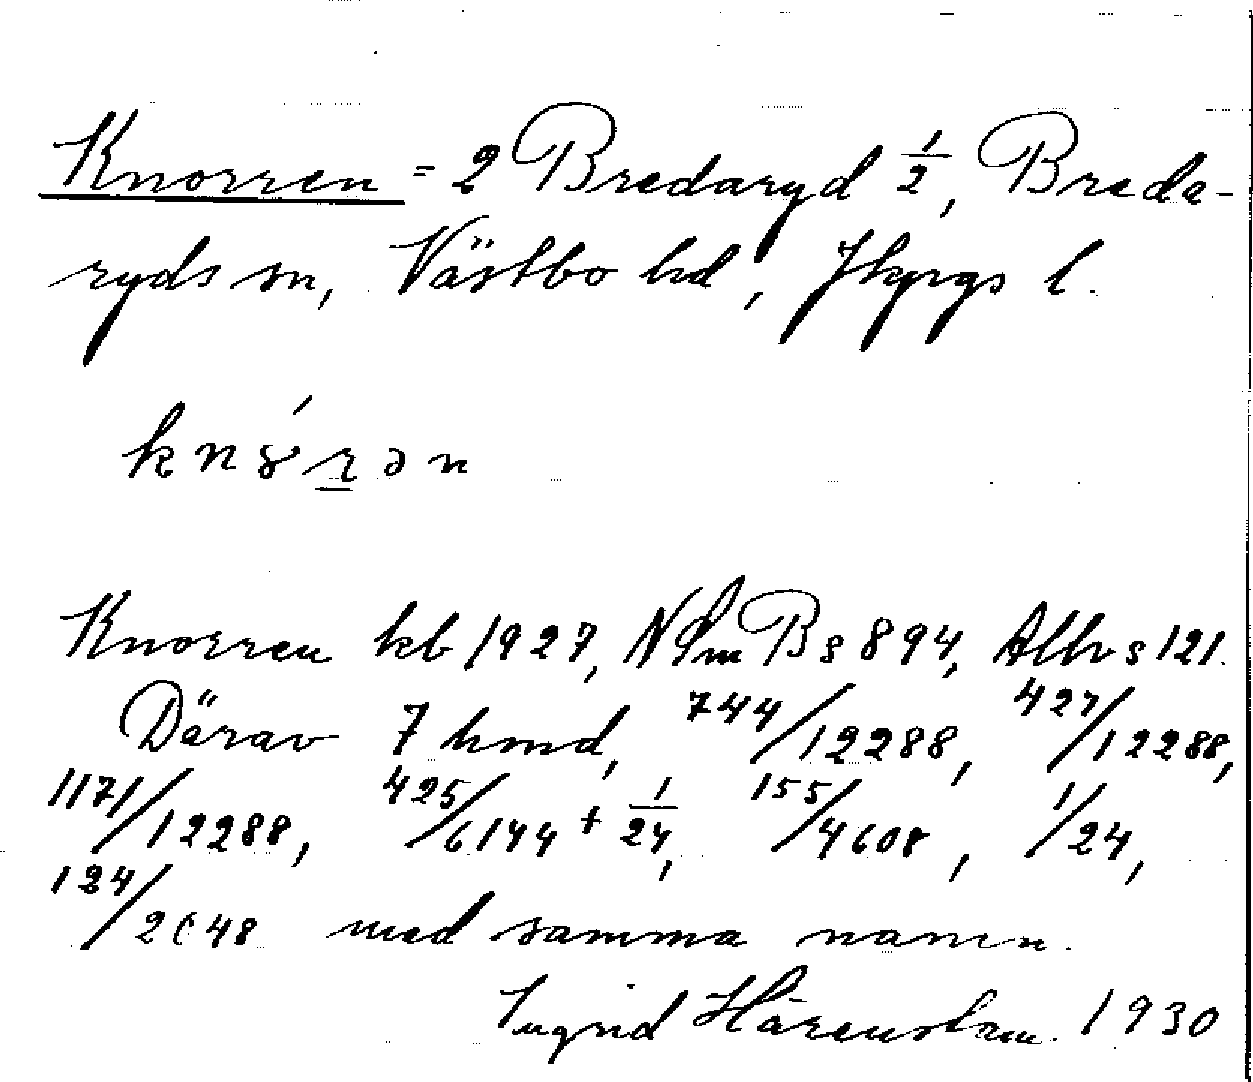 Knorren = 2 Bredaryd 1/2, Breda-
ryds sn, Västbo hd, Jkpgs l.
knɤ́rən
Knorren kb 1927, NSmB s 894, Allhv s 121.
Därav 7 hmd, 744/12288, 427/12288,
1171/12288, 425/6144 + 1/24, 155/4608, 1/24,
124/2048 med samma namn.
Ingrid Härenstam. 1930